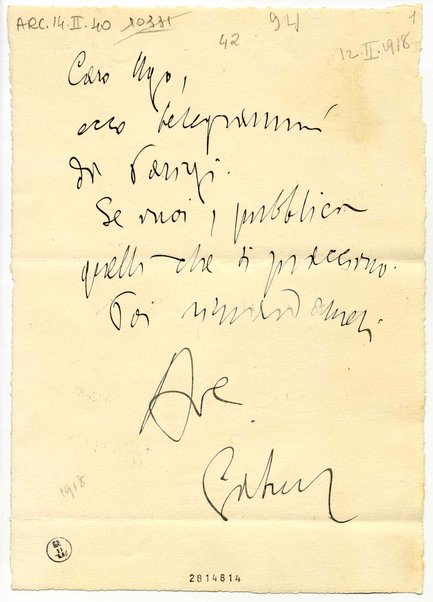 ARC.14.II.40 10331
94
1
42
12.II.1918
Caro Ugo,
ecco telegrammi
da Parigi.
Se vuoi, pubblica
quelli che ti piacciono.
Poi rimandameli
Ave
1918
2814814